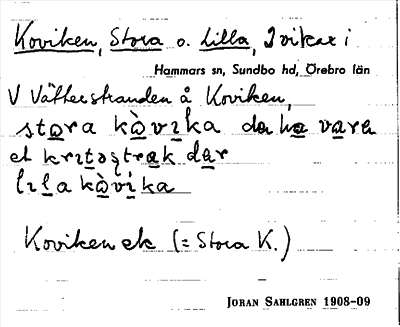 Koviken, Stora o. Lilla, 2 vikar i
Hammars sn, Sundbo hd, Örebro län
V Vätterstranden å Koviken,
stora kòvika da ha vara
et kritəstrak dar
lila kòvika
Koviken ek (= Stora K.)
JORAN SAHLGREN 1908-09